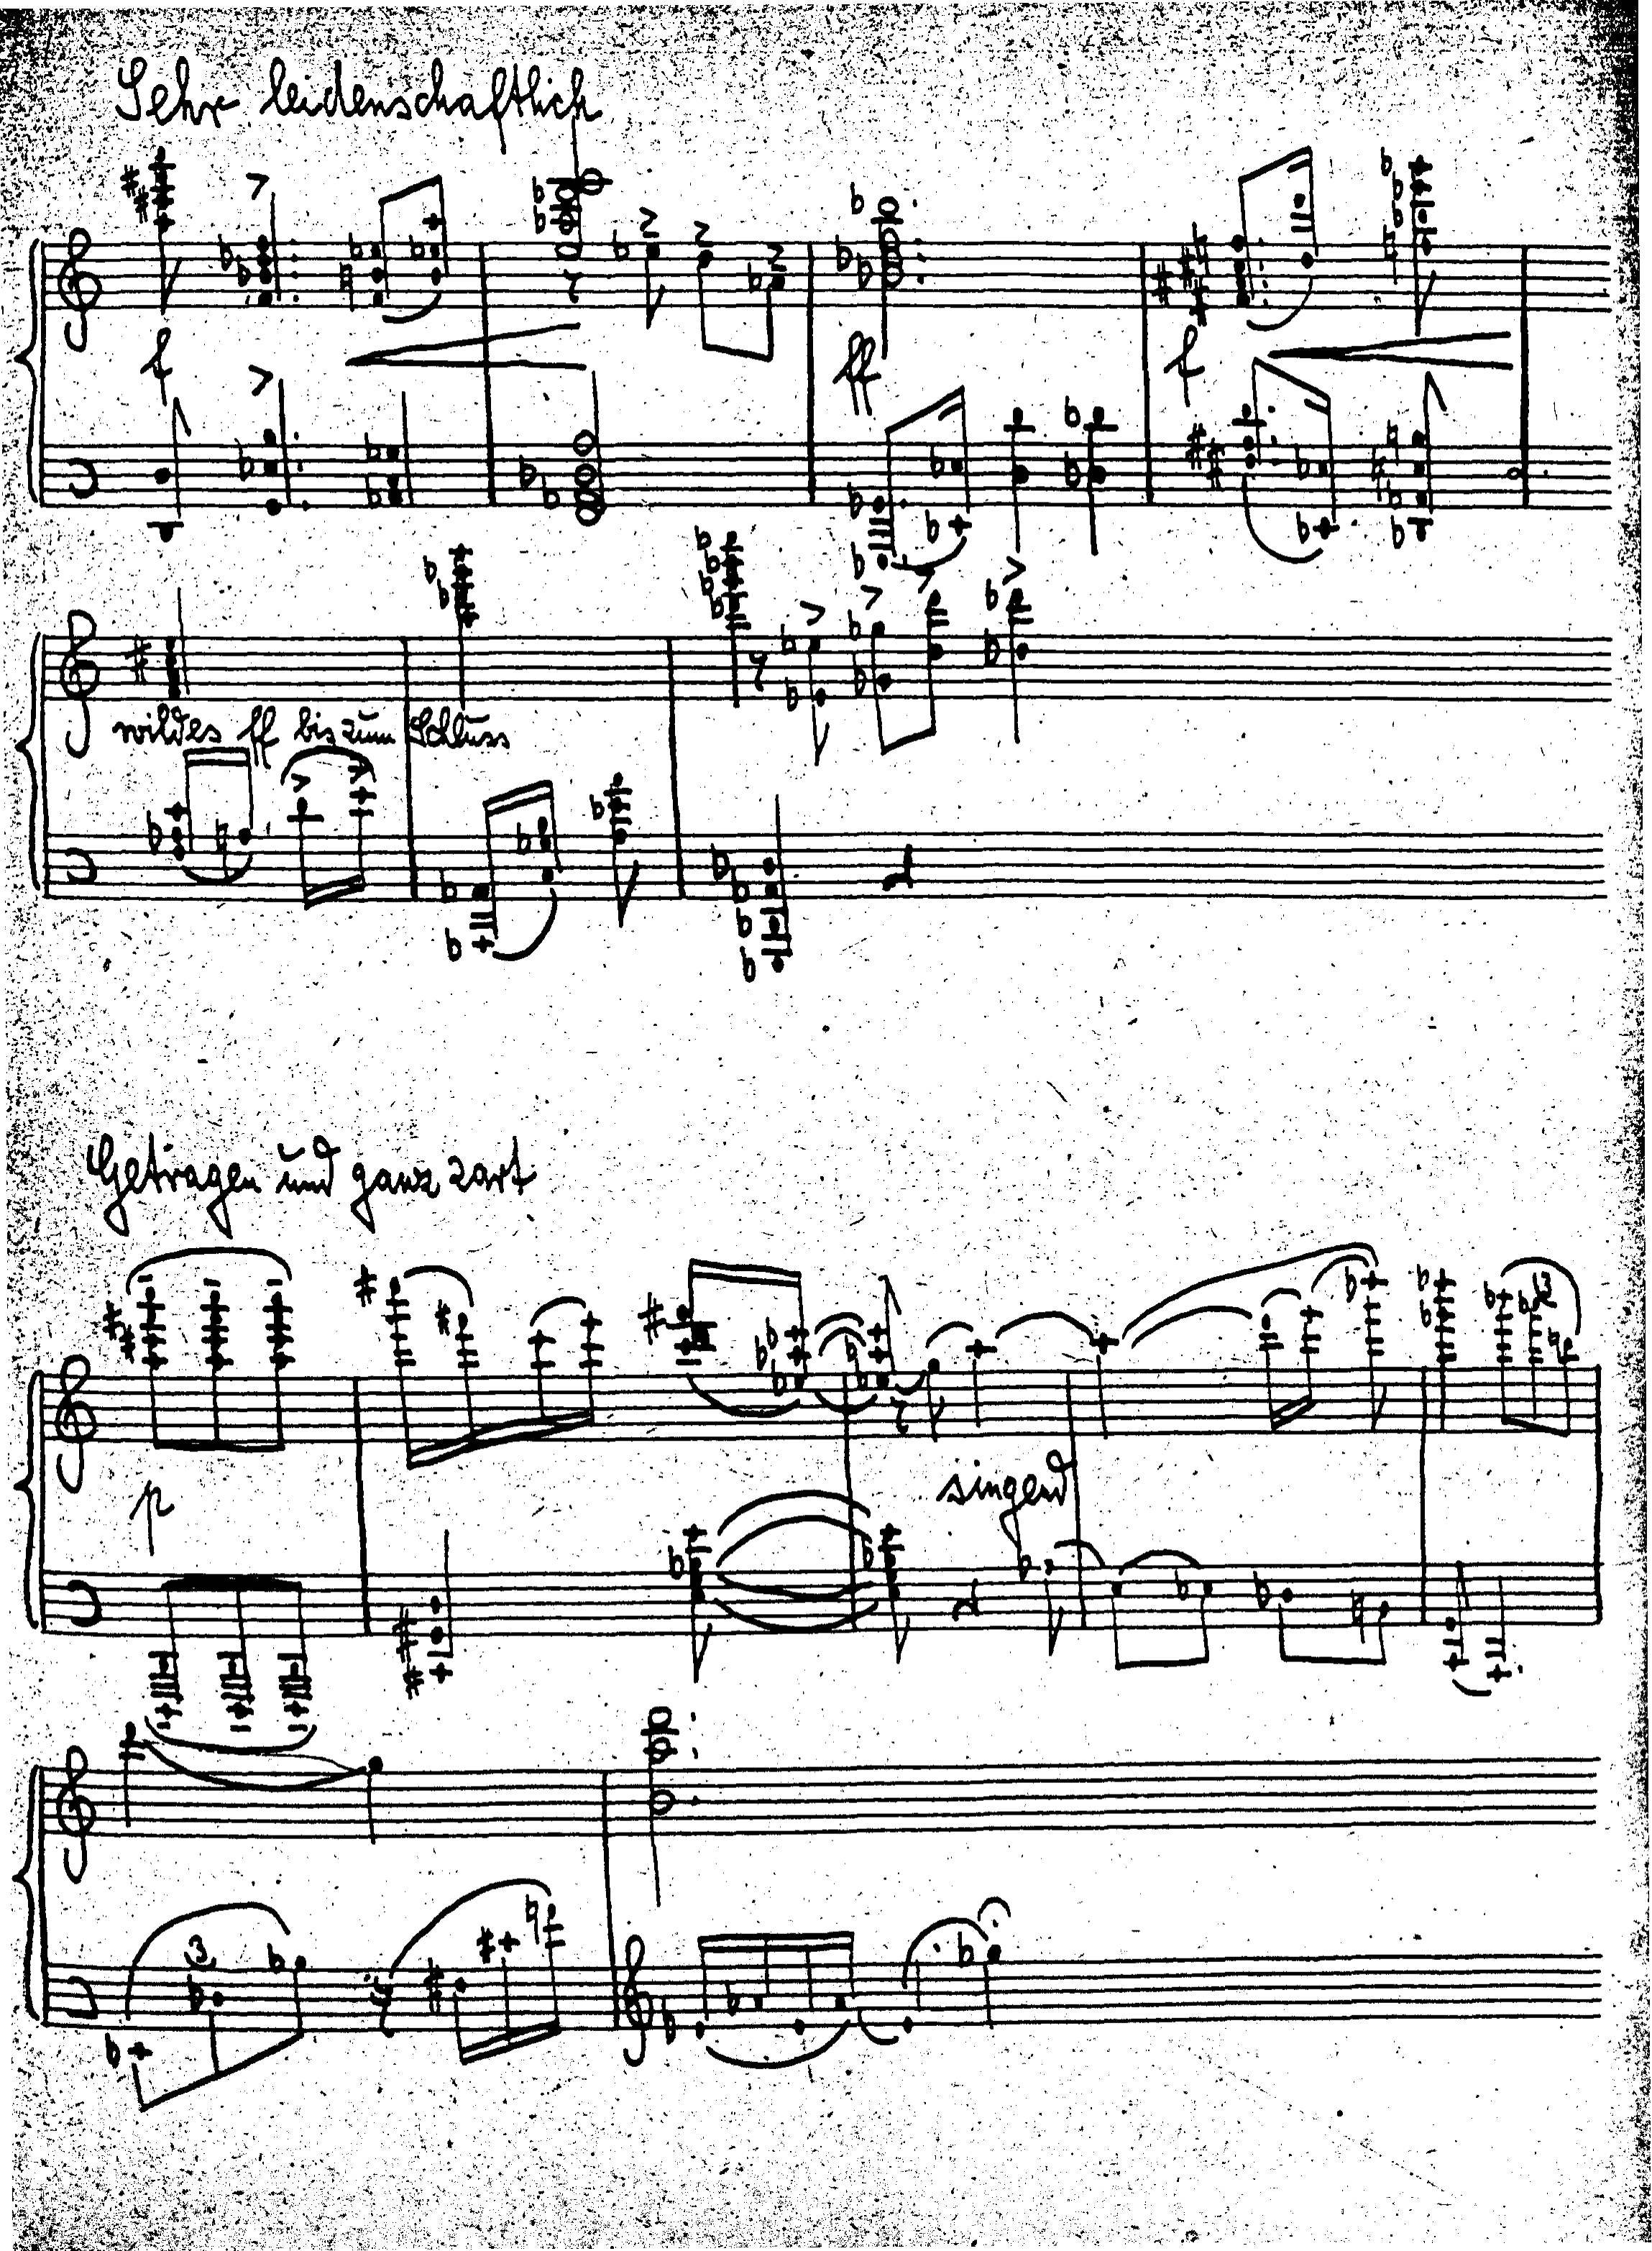 Sehr leidenschaftlich
f
ff
f
wildes ff bis zum Schluss
Getragen und ganz zart
3
p
singend
3